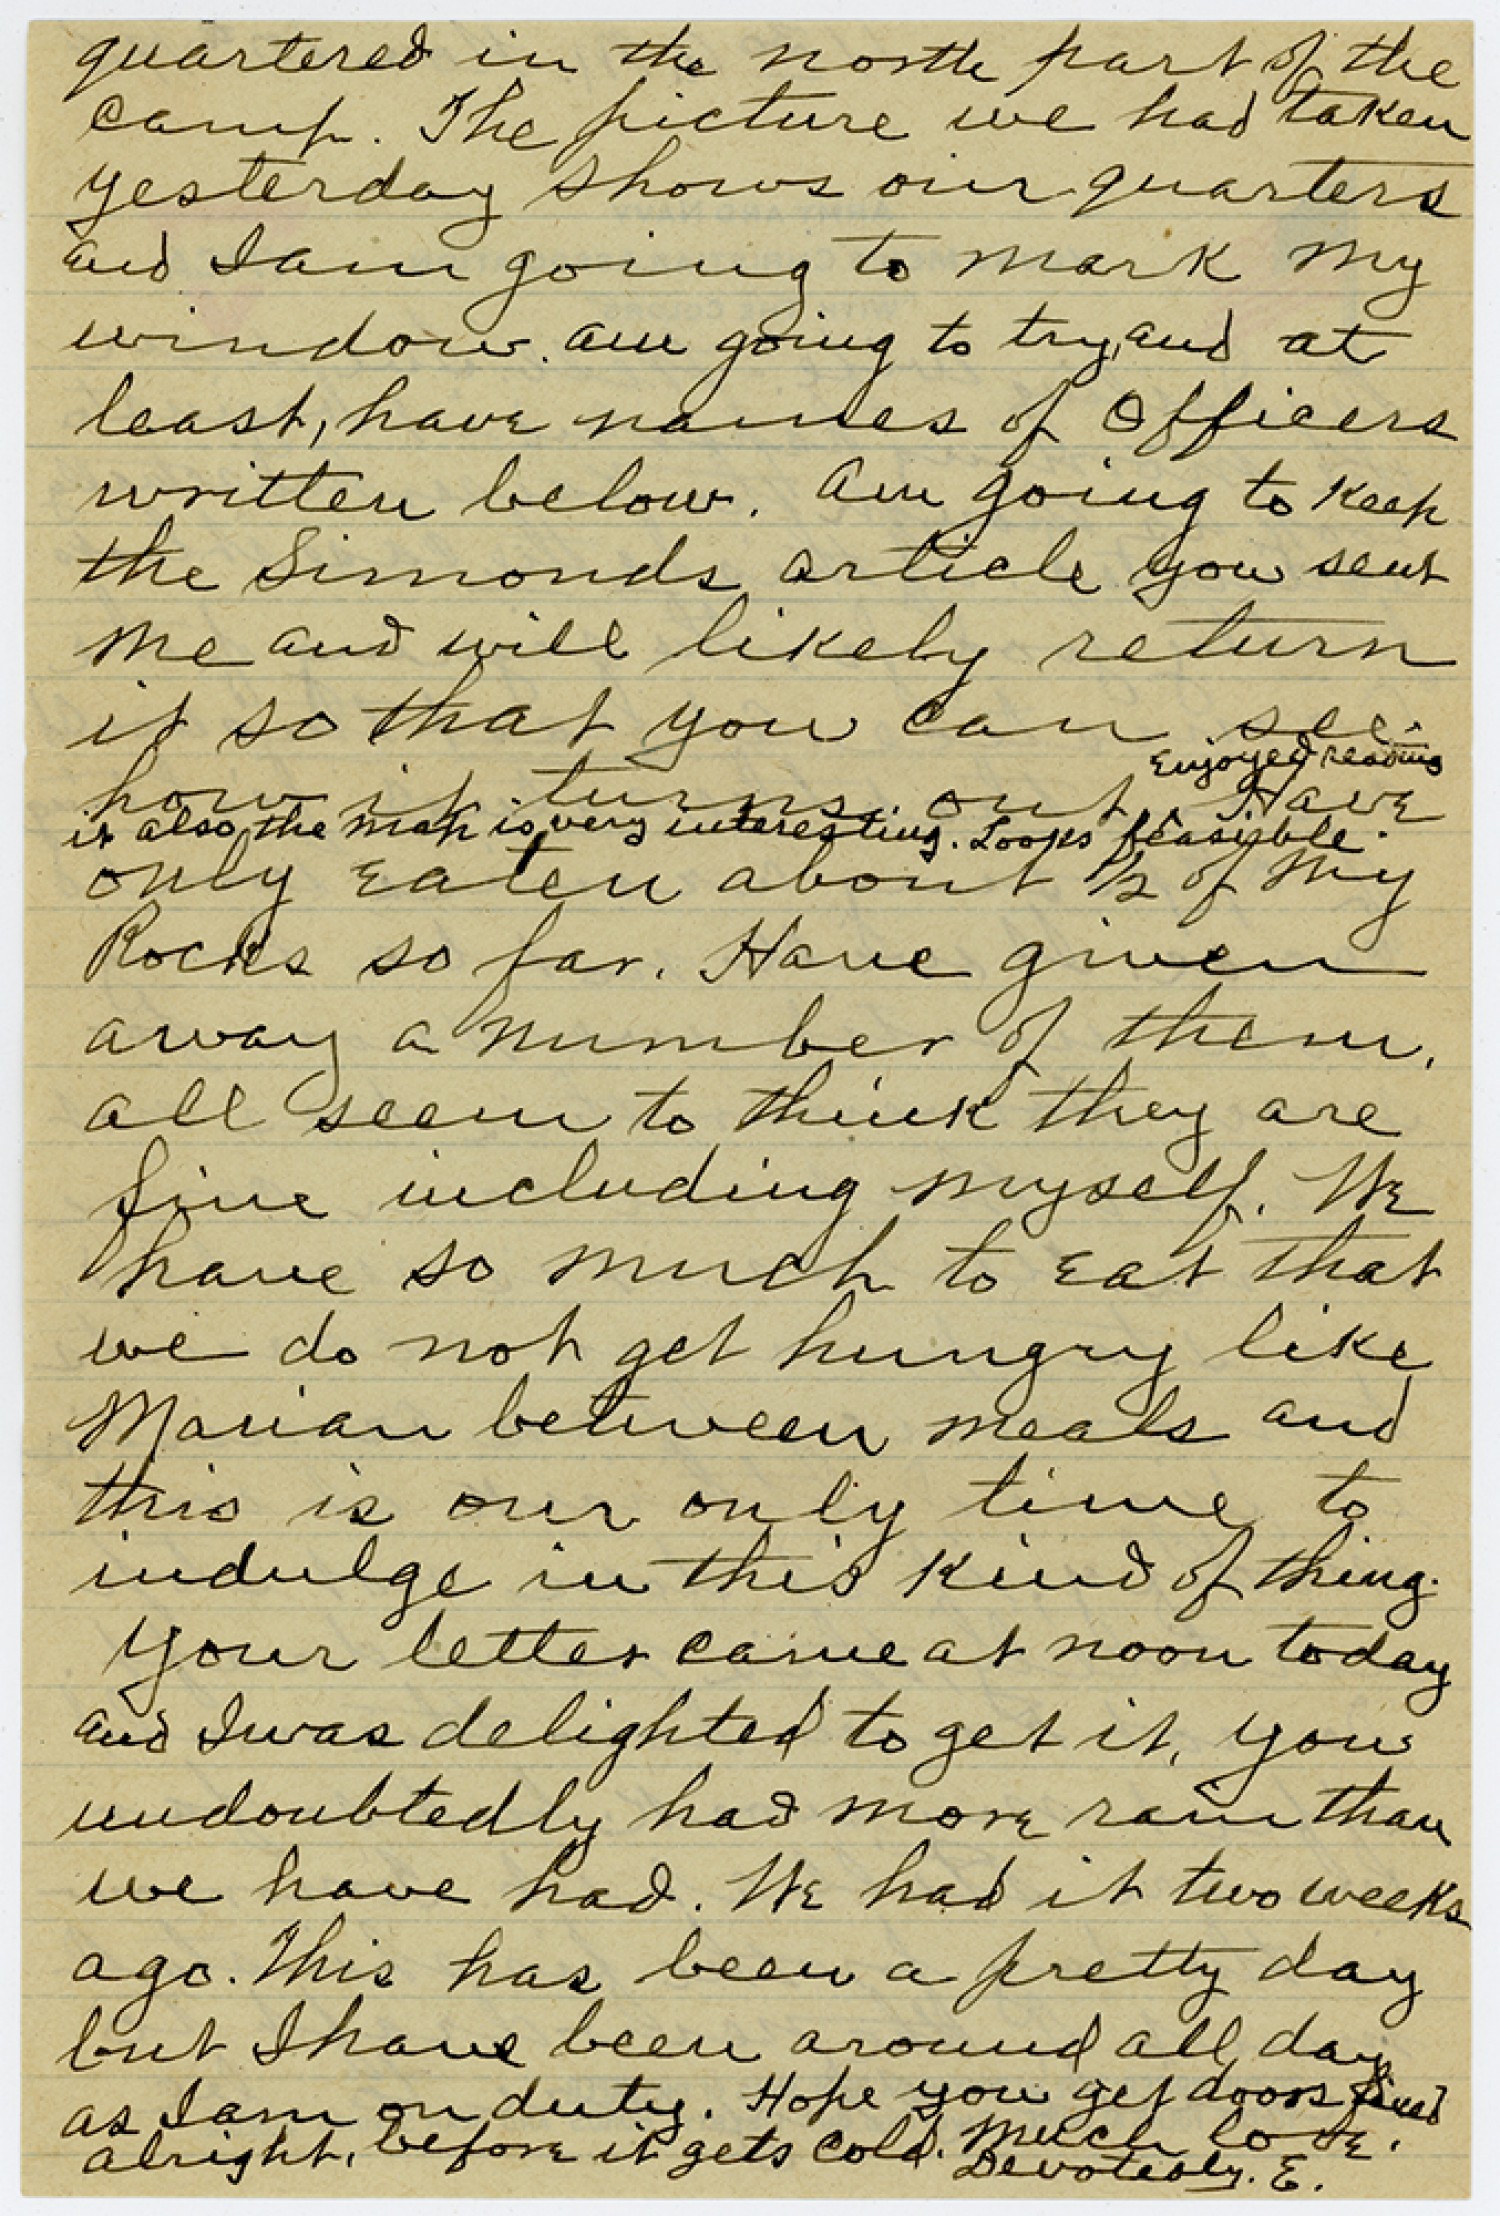 quartered in the north part of the
camp. The picture we had taken
yesterday shows our quarters
and I am going to mark my
window. am going to try, and at
least, have names of Officers
written below. Am going to keep
the Simonds article you sent
me and will likely return
it so that you can see
how it turns out. Enjoyed reading
it also, the map is very interesting. Looks feasible. Have
only eaten about 1/2 of my
Rocks so far. Have given
away a number of them.
all seem to think they are
fine including myself. We
have so much to eat that
we do not get hungry like
Marian between meals and
this is our only time to
indulge in this kind of thing.
Your letter came at noon today
and I was delighted to get it. You
undoubtedly had more rain than
we have had. We had it two weeks
ago. This has been a pretty day
but I have been around all day
as I am on duty. Hope you get doors fixed
alright, before it gets cold. Much love.
Devotedly. E.